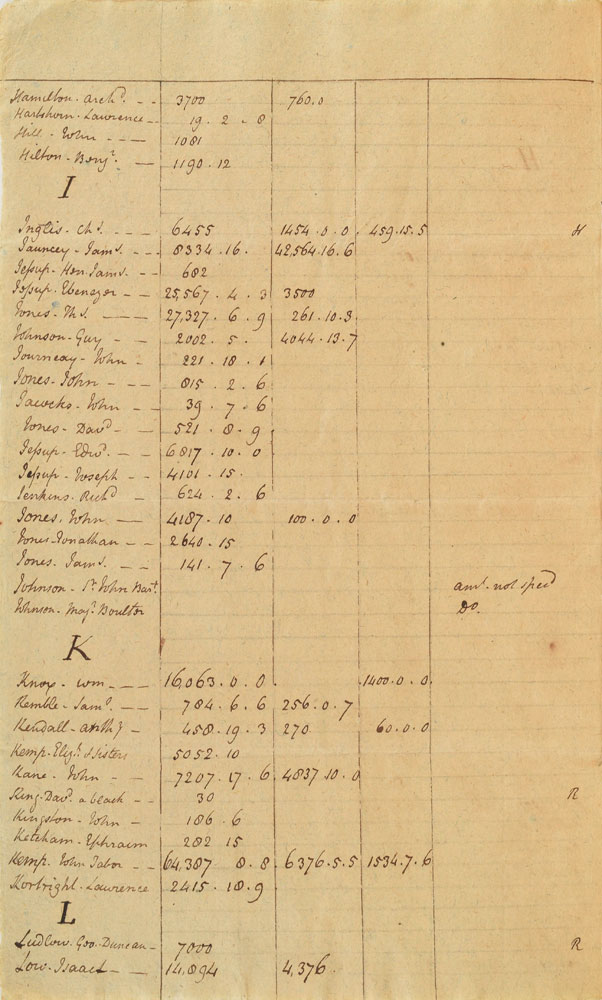 Hamilton. Archd. - - 3700 760.0
Hartshorn. Lawrence - - 19. 2. 8
Hill. John - - - 1081
Hilton. Benjn. — 1190. 12
I
Inglis. Chs. - - - 6455 1454. 0. 0 459. 15. 5 H
Jauncey. Jams. - - - 8334. 16. 42,564. 16. 6
Jessup. Hon. Jams. - - 682
Jessup. Ebenezer - - 25,567. 4. 3 3500
Jones. Ths. - - - 27,327. 6. 9 261. 10. 3
Johnson. Guy - - 2002. 5. 4044. 13. 7
Journeay. John - 221. 18. 1
Jones. John - - - 815. 2. 6
John - 39. 7. 6
Jones. Davd. - — 521. 8. 9
Jessup. Edwd. — 6817. 10. 0
Jessup. Joseph - - 4101. 15.
Jenkins. Richd. - 624. 2. 6
Jones. John. — 4187. 10 100. 0. 0
Jones. Jonathan — 2640. 15
Jones. Jams. - — 141. 7. 6
Johnson. Sr. John Bart. amt. not specd
Johnson. Majr. Boulter Do.
K
Knox. Wm - — 16,063. 0. 0. 1400. 0. 0.
Kemble. Saml. - - 784. 6. 6 256. 0. 7
Kendall. Anthy - 458. 19. 3 270 60. 0. 0
Kemp. Elizh. & Sisters 5052. 10
Kane. John - - 7207. 17. 6 4837. 10. 0
King. Davd. a black - - 30 R
Kingston. John - 186. 6
Ketcham. Ephraim 282 15
Kemp. John Tabor - - 64,387 8. 8. 6,376. 5. 5 1534. 7. 6
Kortright. Lawrence 2415. 18. 9
L
Ludlow. Geo. Duncan - 7000 R
Low. Isaac - — 14,894 4,376.